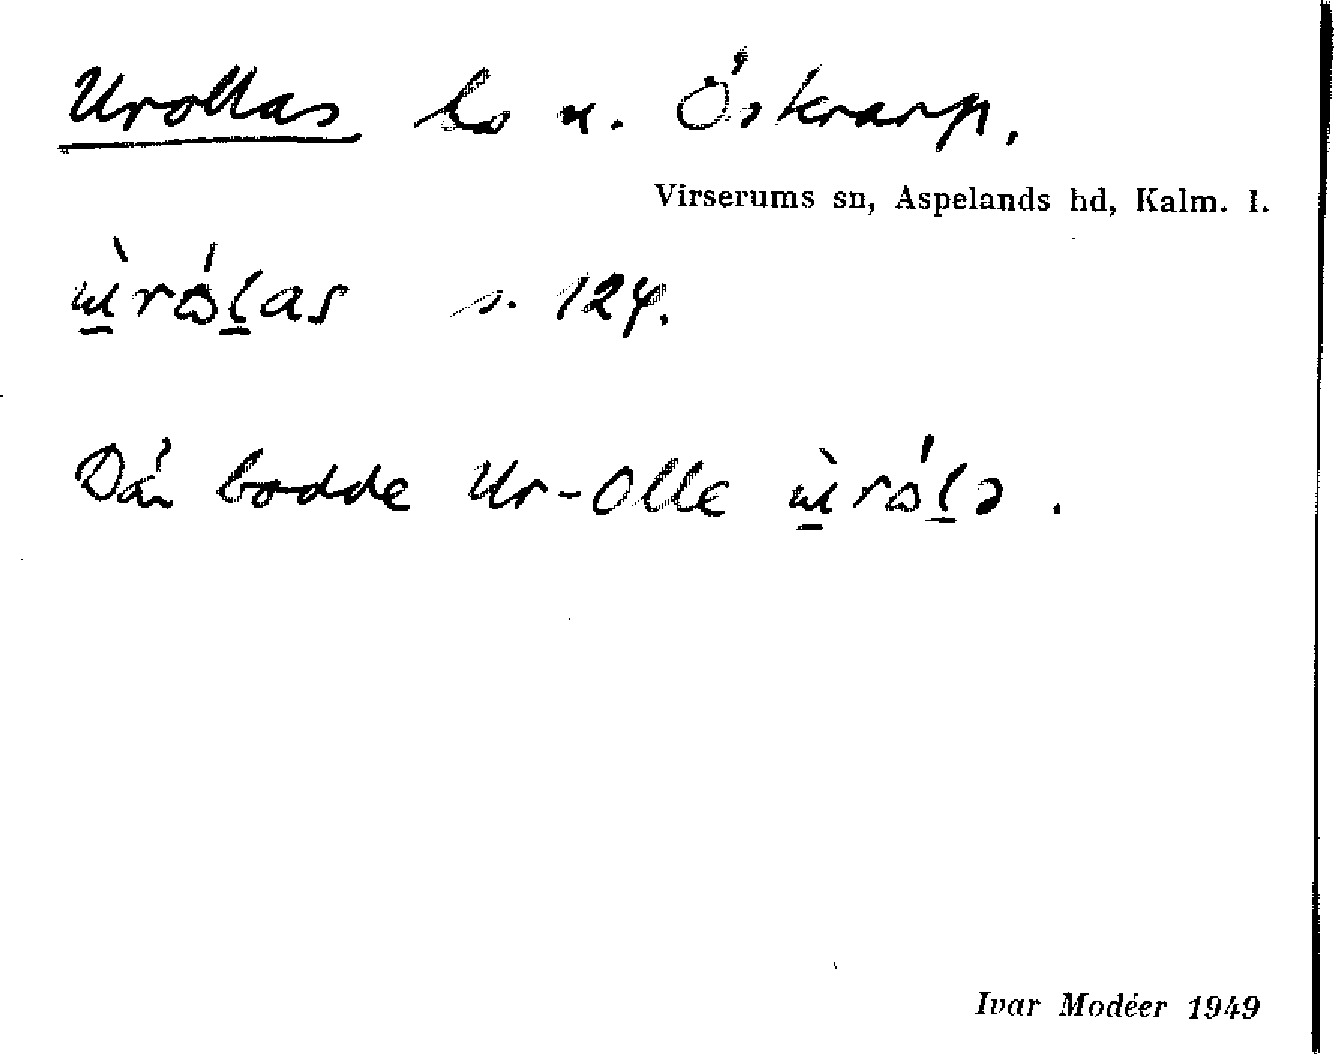 Urollas ls u. Öskrarp.
Virserums sn, Aspelands hd, Kalm. l.
ɯ̀rɷ́ɩas s. 124.
Där bodde Ur-Olle ɯ̀rɷ́ɩə.
Ivar Modéer 1949